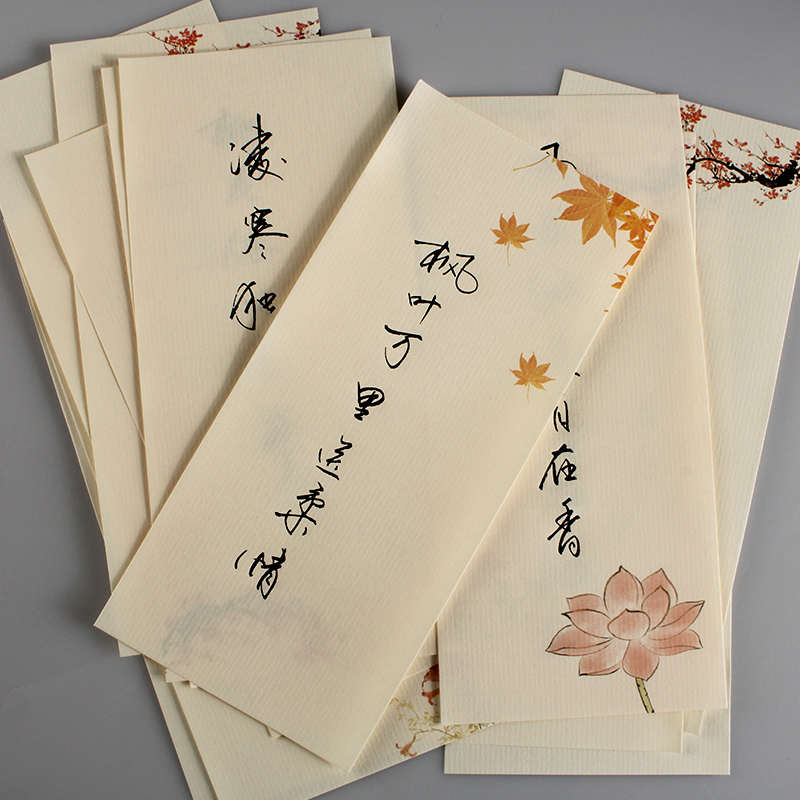 凌寒独
枫叶万里送柔情
自在香